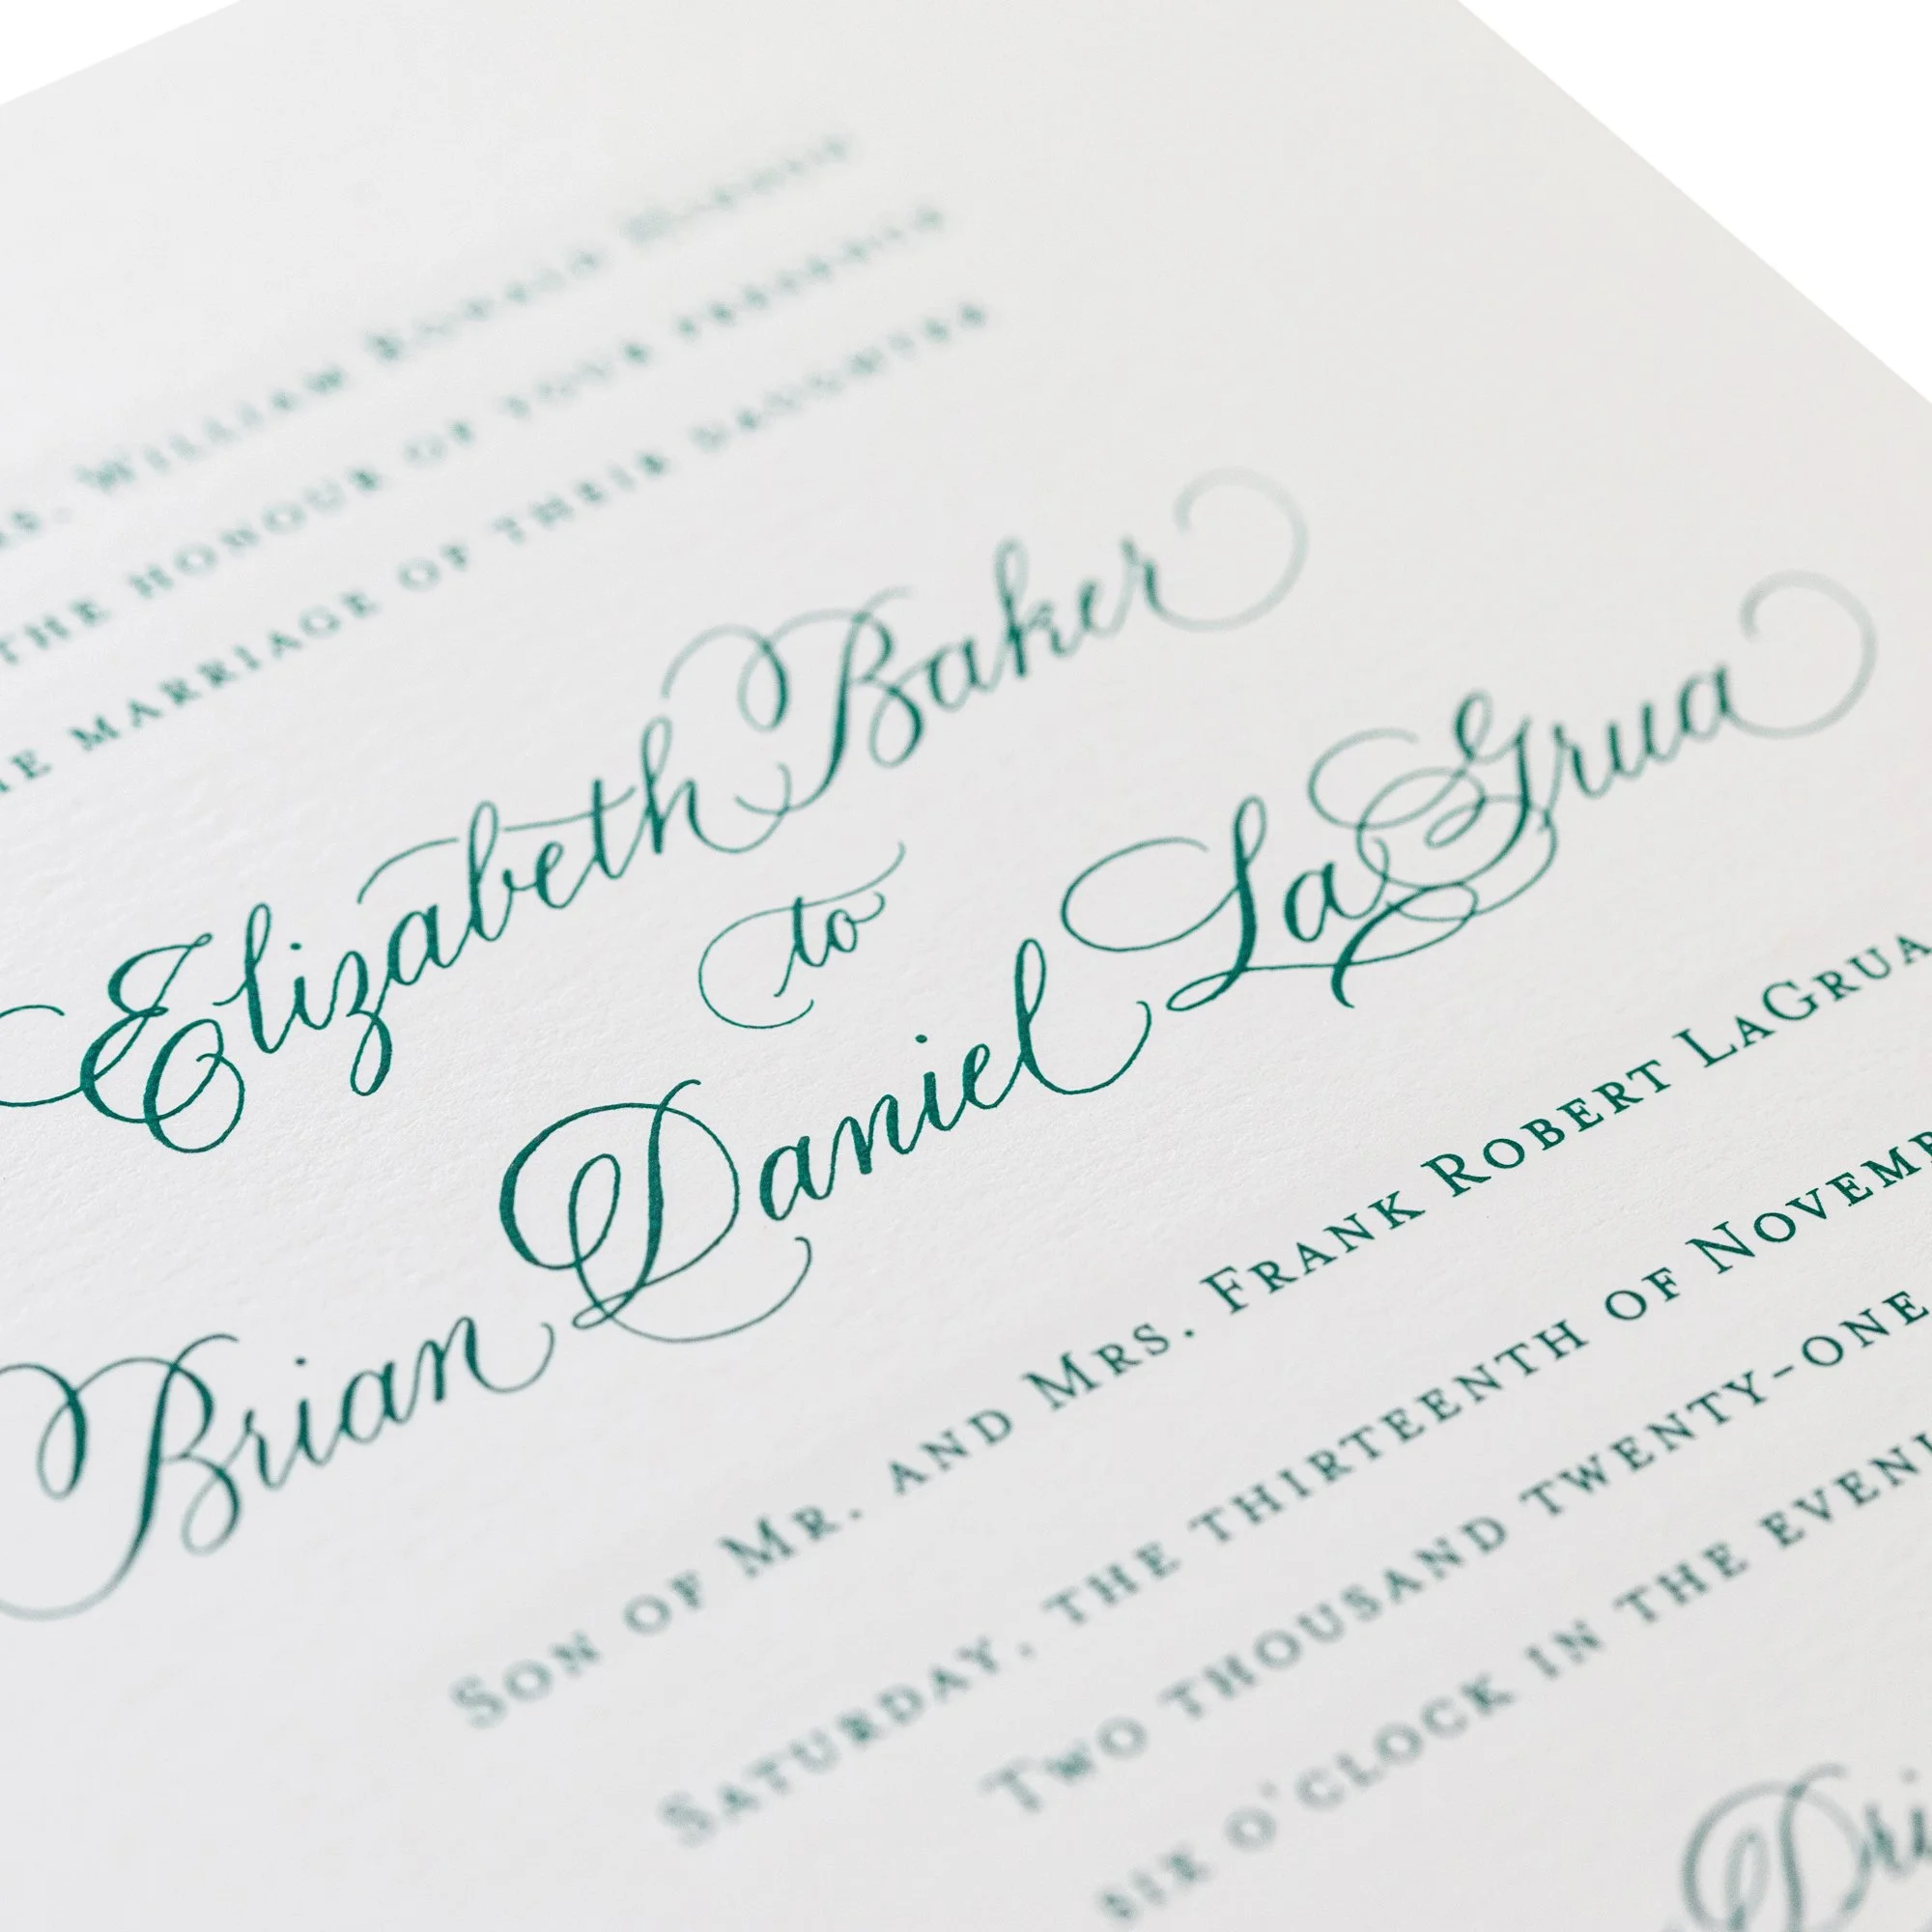 William Ronald
the honour of your presence
marriage of their daughter
Elizabeth Baker
to
Brian Daniel LaGrua
Son of Mr. and Mrs. Frank Robert LaGrua
Saturday, the thirteenth of Novemb
Two thousand twenty-one
six o'clock in the eveni